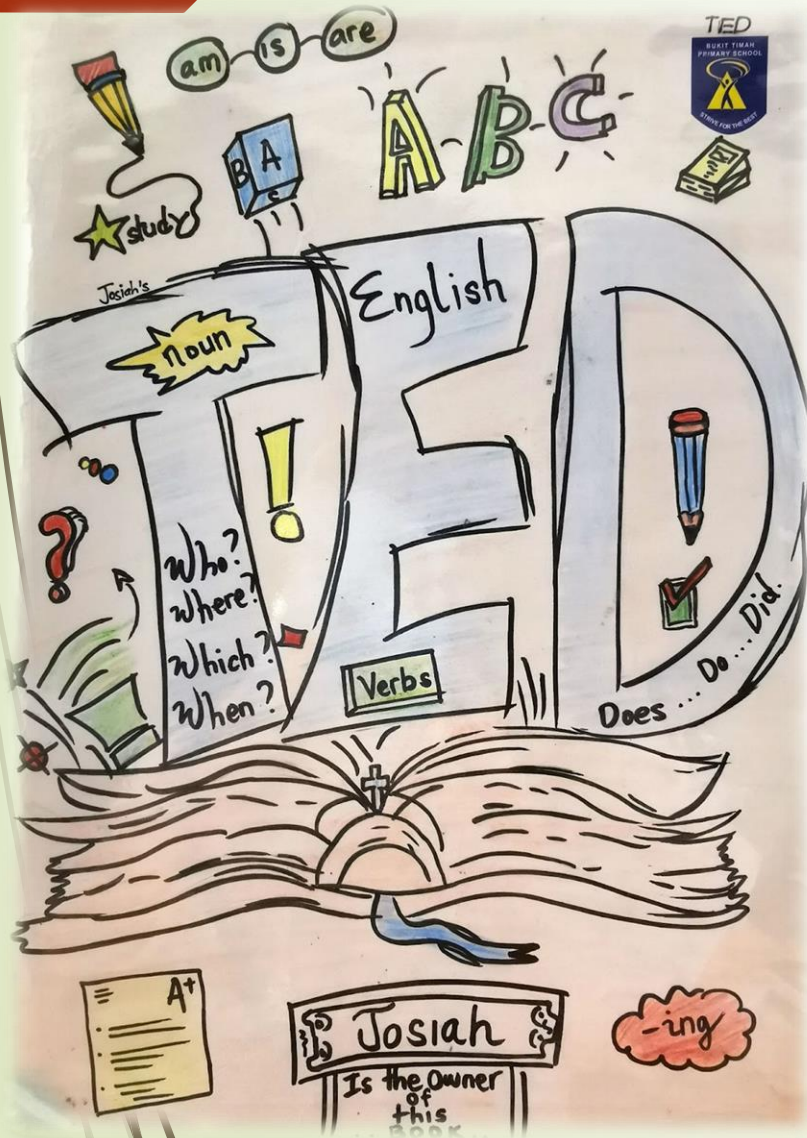 TED
BUKIT TIMAH
PRIMARY SCHOOL
STRIVE FOR THE BEST
am is are
A B C
B A
C
study
Josiah's
noun
English
TED
Who?
Where?
Which?
When?
!
?
Verbs
Does ... Do ... Did.
A+
Josiah
Is the Owner
of
this
BOOK
-ing